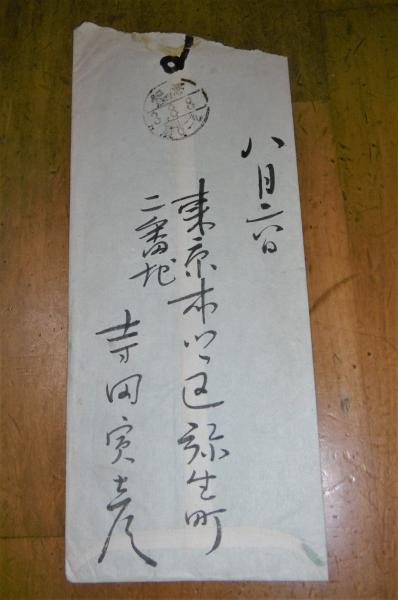 八月二八日
東京本郷区弥生町
二番地
寺田寅彦